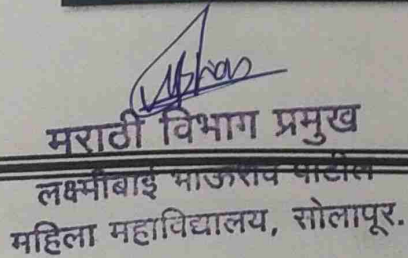 मराठी विभाग प्रमुख
लक्ष्मीबाई भाऊराव पाटील
महिला महाविद्यालय, सोलापूर.